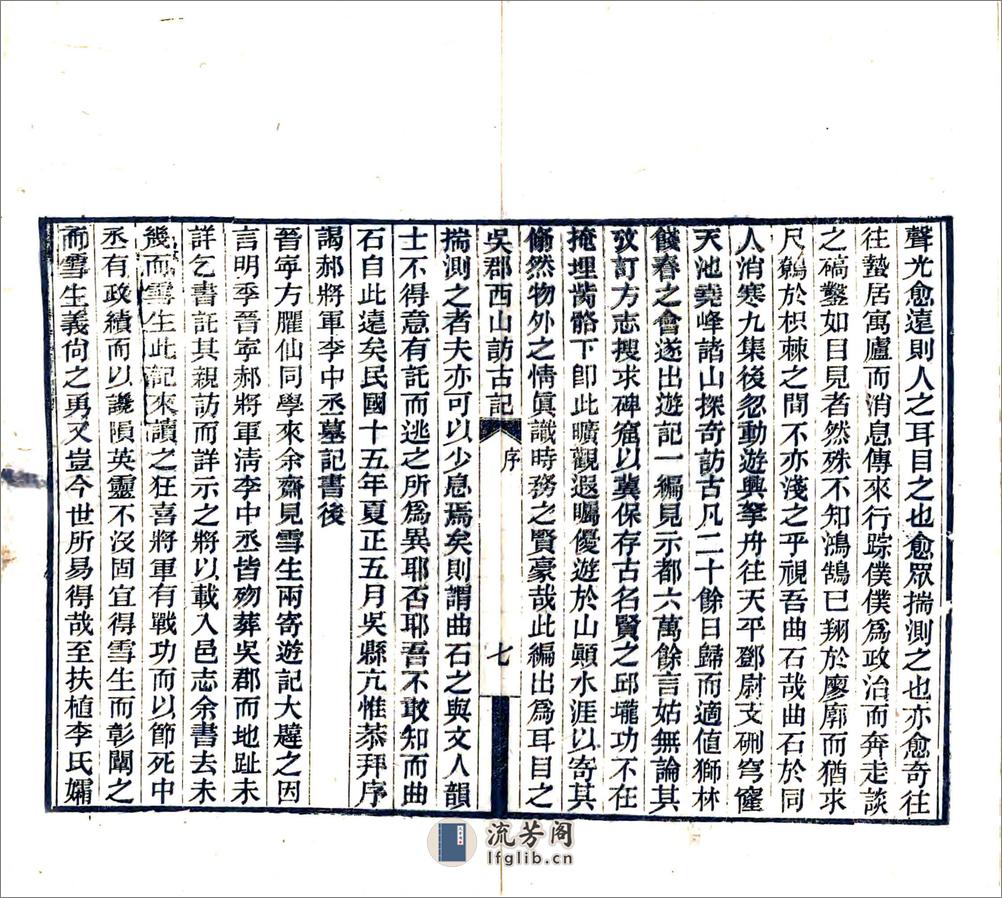 聲光愈遠則人之耳目之也愈眾揣測之也亦愈奇往
往蟄居寓廬而消息傳來行踪僕僕爲政治而奔走談
之確鑿如目見者然殊不知鴻鵠已翔於廖廓而猶求
尺鷃於枳棘之間不亦淺之乎視吾曲石哉曲石於同
人消寒九集後忽動遊興拏舟往天平鄧尉支硎穹窿
天池堯峰諸山探奇訪古凡二十餘日歸而適值獅林
餞春之會遂出遊記一編見示都六萬餘言姑無論其
攷訂方志搜求碑窟以冀保存古名賢之邱壠功不在
掩埋胔骼下卽此曠觀遐矚優遊於山顚水涯以寄其
翛然物外之情眞識時務之賢豪哉此編出爲耳目之
吳郡西山訪古記
序
七
揣測之者夫亦可以少息焉矣則謂曲石之與文人韻
士不得意有託而逃之所爲異耶否耶吾不敢知而曲
石自此遠矣民國十五年夏正五月吳縣亢惟恭拜序
謁郝將軍李中丞墓記書後
晉寧方臞仙同學來余齋見雪生兩寄遊記大韙之因
言明季晉寧郝將軍淸李中丞皆歿葬吳郡而地趾未
詳乞書託其親訪而詳示之將以載入邑志余書去未
幾而雪生此記來讀之狂喜將軍有戰功而以節死中
丞有政績而以讒隕英靈不沒固宜得雪生而彰闡之
而雪生義尙之勇又豈今世所易得哉至扶植李氏孀
流芳阁
lfglib.cn